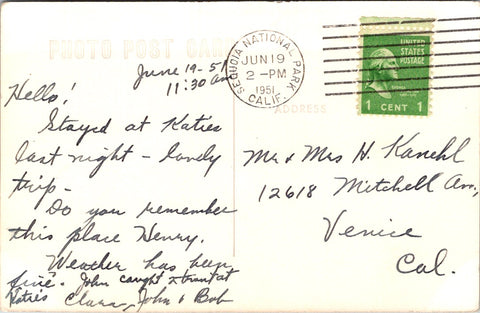 PHOTO POST CARD
June 19-51
11:30 am
Hello!
Stayed at Katies
last night - lovely
trip -
Do you remember
this place Henry.
Weather has been
fine. John caught trout at
Katies Clara, John & Bob
SEQUOIA NATIONAL PARK
JUN 19
2 - PM
1951
CALIF.
UNITED
STATES
POSTAGE
1 CENT 1
ADDRESS
Mr & Mrs H. Kanehl
12618 Mitchell Ave.,
Venice
Cal.